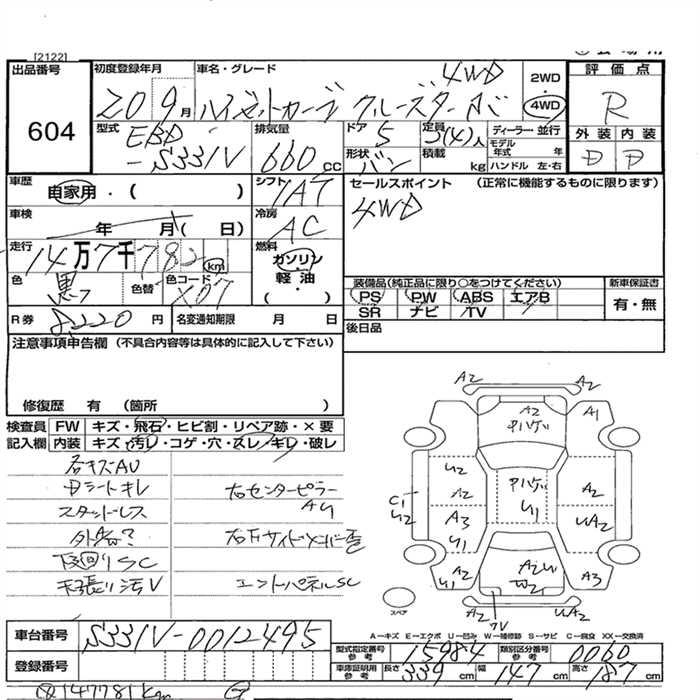 [2122]
出品番号 604
初度登録年月 20 9月
車名・グレード ハイゼットカーゴ クルーズターボ 4WD
2WD 4WD
評価点 R
外装 内装
D D
型式 EBD-S331V
排気量 660cc
ドア 5
形状 バン
定員 (4)人
積載 kg
ディーラー 並行
モデル年式 年
ハンドル 左・右
車歴 自家用・( )
シフト 1AT
セールスポイント (正常に機能するものに限ります)
4WD
車検 年 月( 日)
冷房 AC
走行 14万7千782km
燃料 ガソリン 軽油・( )
色 黒 色替 色コード X07
装備品(純正品に限り○をつけてください) 新車保証書
PS PW ABS エアB 有・無
SR ナビ TV
R券 8,220円
名変通知期限 月 日
後日品
注意事項申告欄 (不具合内容等は具体的に記入して下さい)
修復歴 有 (箇所 )
検査員 FW キズ・飛石・ヒビ割・リペア跡・×要
記入欄 内装 キズ・汚レ・コゲ・穴・スレ・キレ・破レ
各キズAU
Dシートキレ 右センターピラー
スタッドレス A4
下回りSC
天張リ汚V エンドパネルSC
A2 A2
A2 A1
U2 A2
C1 A2 U1 UA2
U2 A3
U1
A2 U1 A2 U1 W2 A3
スペア
A2 UA2
A-キズ E-エクボ U-凹み W-補修跡 S-サビ C-腐食 XX-交換済
車台番号 S331V-0012495
型式指定番号 参考 15984
類別区分番号 参考 0060
登録番号
車庫証明用 参考 長さ 339cm 幅 147cm 高さ 187cm
147781km